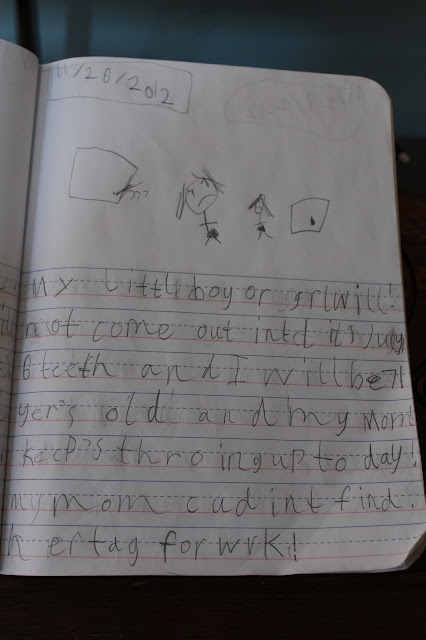 11/26/2012
My Littli boy or grlwill!
not come out intd it's July
6 teeth and I will be 7!
yer's old and my Mom
keep's thro ing up to day!
my mom cud int find.
h er tag for wrk!